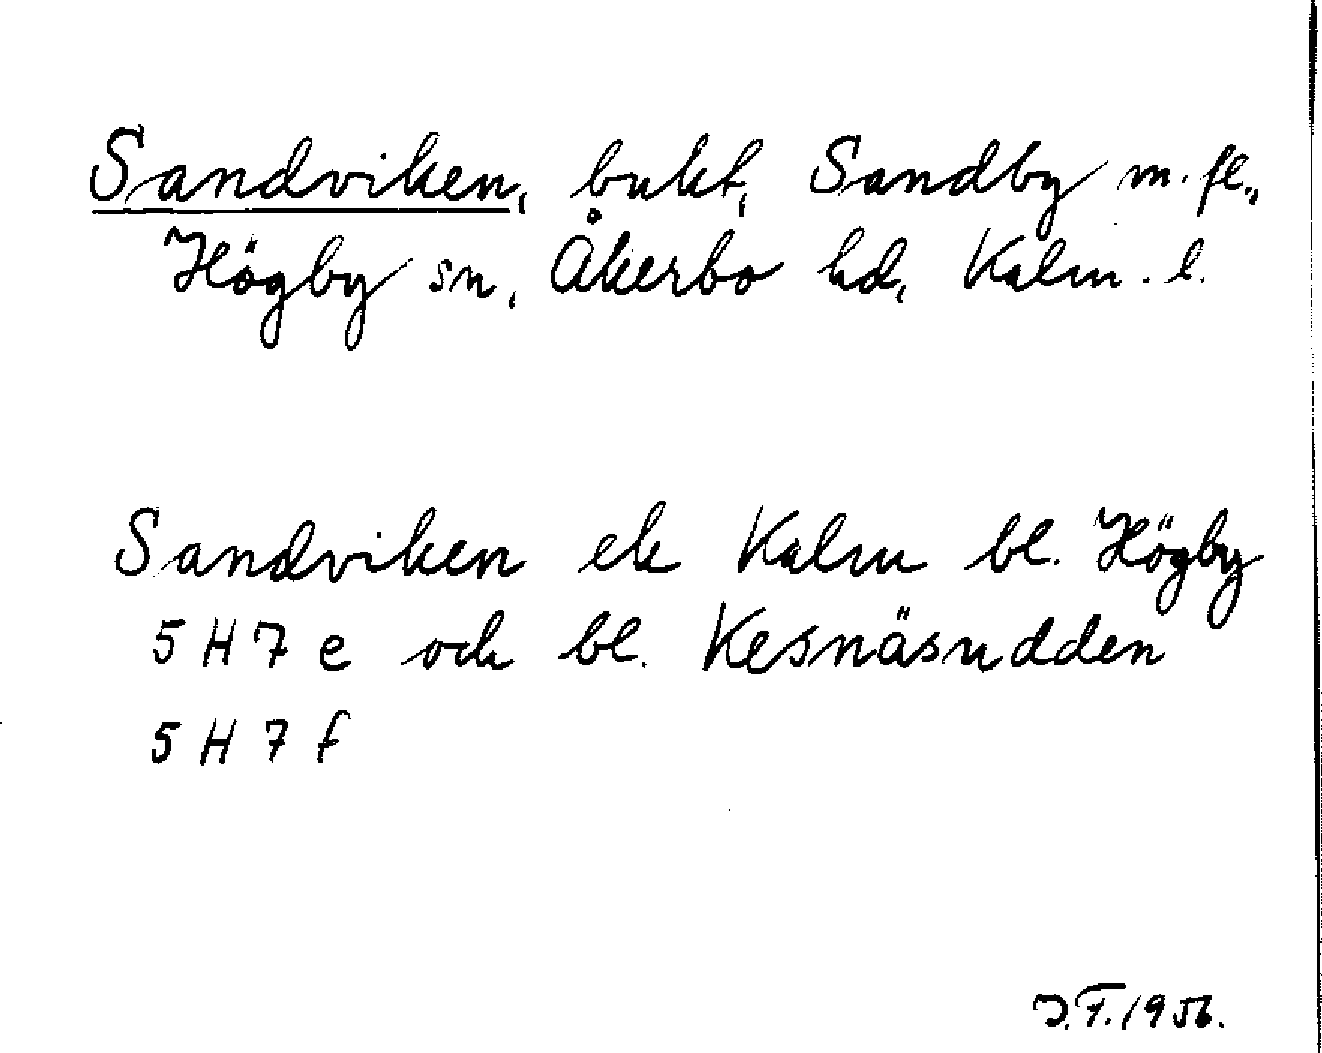 Sandviken, bukt, Sandby m. fl.,
Högby sn, Åkerbo hd, Kalm. l.
Sandviken ek Kalm bl. Högby
5 H 7 e och bl. Kesnäsudden
5 H 7 f
J.F. 1956.